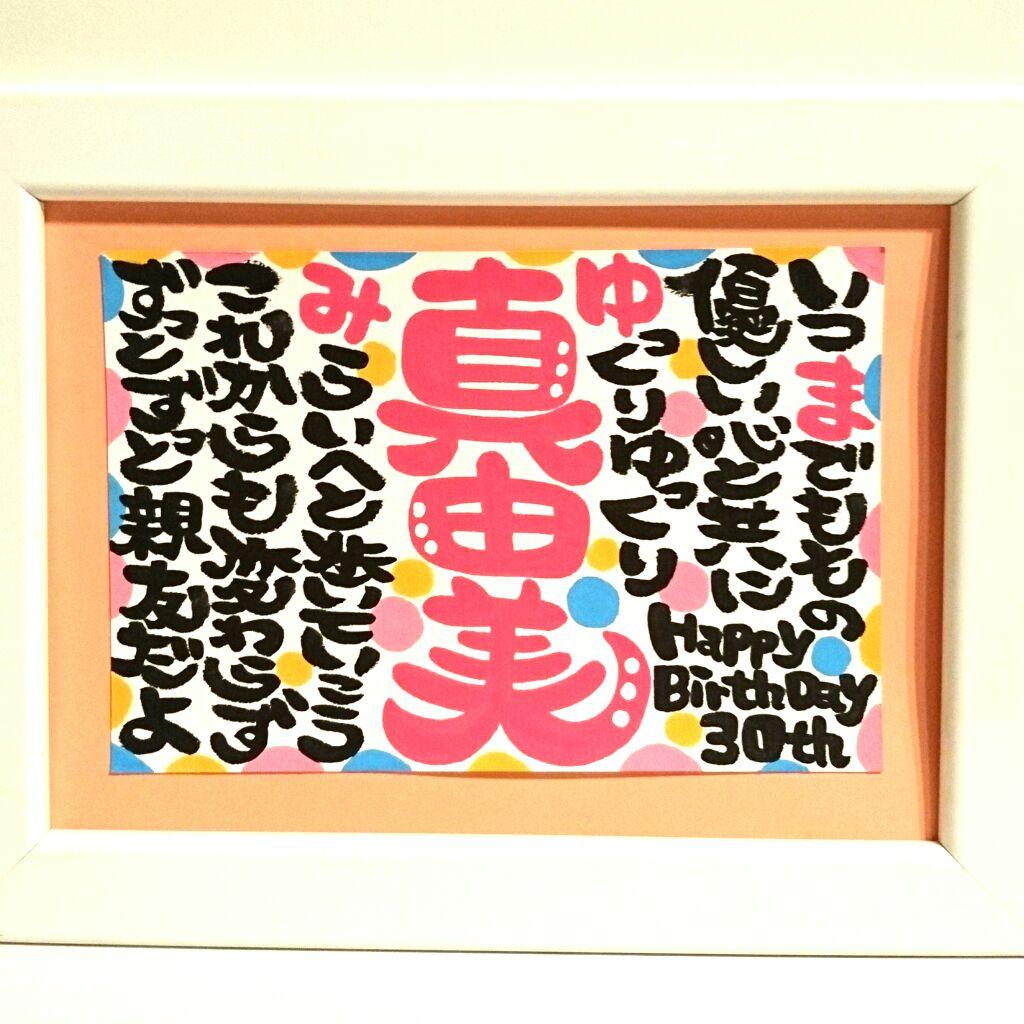 いつまでもその
優しい心と共に
ゆっくりゆっくり
真由美
みらいへと歩いていこう
これからも変わらず
ずっとずっと親友だよ
Happy
BirthDay
30th